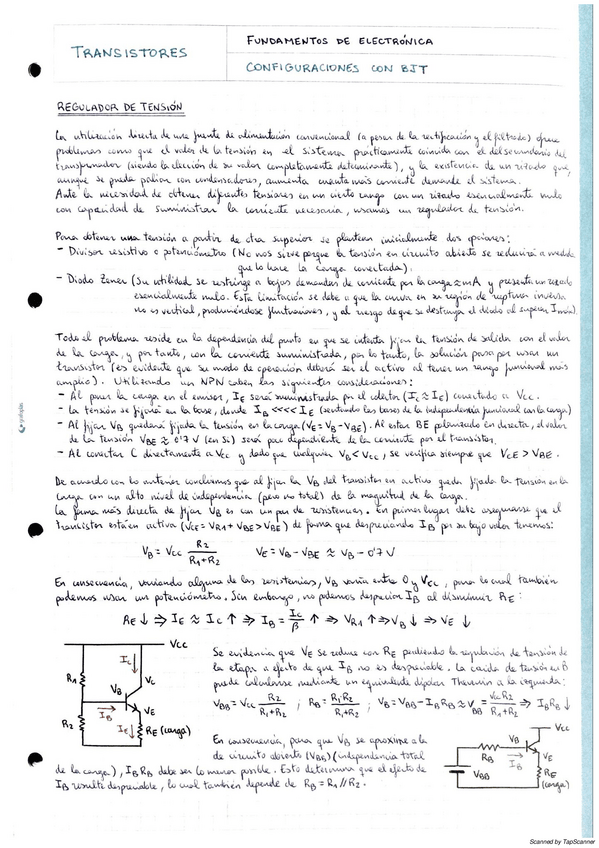 TRANSISTORES
FUNDAMENTOS DE ELECTRÓNICA
CONFIGURACIONES CON BJT
REGULADOR DE TENSIÓN
La utilización directa de una fuente de alimentación convencional (a pesar de la rectificación y el filtrado) ofrece
problemas como que el valor de la tensión en el sistema prácticamente coincida con el del secundario del
transformador (siendo la elección de su valor completamente determinante), y la existencia de un rizado que,
aunque se pueda paliar con condensadores, aumenta cuanta más corriente demande el sistema.
Ante la necesidad de obtener diferentes tensiones en un cierto rango con un rizado esencialmente nulo
con capacidad de suministrar la corriente necesaria, usamos un regulador de tensión.
Para obtener una tensión a partir de otra superior se plantean inicialmente dos opciones:
- Divisor resistivo o potenciómetro (No nos sirve porque la tensión en circuito abierto se reducirá a medida
que lo hace la carga conectada).
- Diodo Zener (Su utilidad se restringe a bajas demandas de corriente por la carga ≈ mA y presenta un rizado
esencialmente nulo. Esta limitación se debe a que la curva en su región de ruptura inversa
no es vertical, produciéndose fluctuaciones, y al riesgo de que se destruya el diodo al superar Imáx).
Todo el problema reside en la dependencia del punto en que se intenta fijar la tensión de salida con el valor
de la carga, y por tanto, con la corriente suministrada, por lo tanto, la solución pasa por usar un
transistor (es evidente que su modo de operación deberá ser el activo al tener un rango funcional más
amplio). Utilizando un NPN caben las siguientes consideraciones:
- Al poner la carga en el emisor, IE será suministrada por el colector (IC ≈ IE) conectado a VCC.
- La tensión se fijará en la base, donde IB <<<< IE (sentando las bases de la independencia funcional con la carga)
- Al fijar VB quedará fijada la tensión en la carga (VE = VB - VBE). Al estar BE polarizado en directa, el valor
de la tensión VBE ≈ 0'7 V (en Si) será poco dependiente de la corriente por el transistor.
- Al conectar C directamente a VCC y dado que cualquier VB < VCC, se verifica siempre que VCE > VBE.
De acuerdo con lo anterior concluimos que al fijar la VB del transistor en activa queda fijada la tensión en la
carga con un alto nivel de independencia (pero no total) de la magnitud de la carga.
La forma más directa de fijar VB es con un par de resistencias. En primer lugar debe asegurarse que el
transistor está en activa (VCE = VR1 + VBE > VBE) de forma que despreciando IB por su bajo valor tenemos:
VB = VCC R2/(R1+R2) VE = VB - VBE ≈ VB - 0'7 V
En consecuencia, variando alguna de las resistencias, VB varía entre 0 y VCC, para lo cual también
podemos usar un potenciómetro. Sin embargo, no podemos despreciar IB al disminuir RE:
RE ↓ ⇒ IE ≈ IC ↑ ⇒ IB = IC/β ↑ ⇒ VR1 ↑ ⇒ VB ↓ ⇒ VE ↓
VCC
IC
R1
VC
VB
IB
VE
R2
IE
RE (carga)
Se evidencia que VE se reduce con RE perdiendo la regulación de tensión de
la etapa a efecto de que IB no es despreciable. La caída de tensión en B
puede calcularse mediante un equivalente dipolar Thevenin a la izquierda:
VBB = VCC R2/(R1+R2) ; RB = R1·R2/(R1+R2) ; VB = VBB - IB RB ≈ VBB = VCC R2/(R1+R2) ⇒ IB RB ↓
En consecuencia, para que VB se aproxime a la
de circuito abierto (VBB) (independencia total
de la carga), IB RB debe ser lo menor posible. Esto determina que el efecto de
IB resulte despreciable, lo cual también depende de RB = R1 // R2.
VCC
VB
RB
IB
VE
VBB
RE
(carga)
grafoplás
Scanned by TapScanner